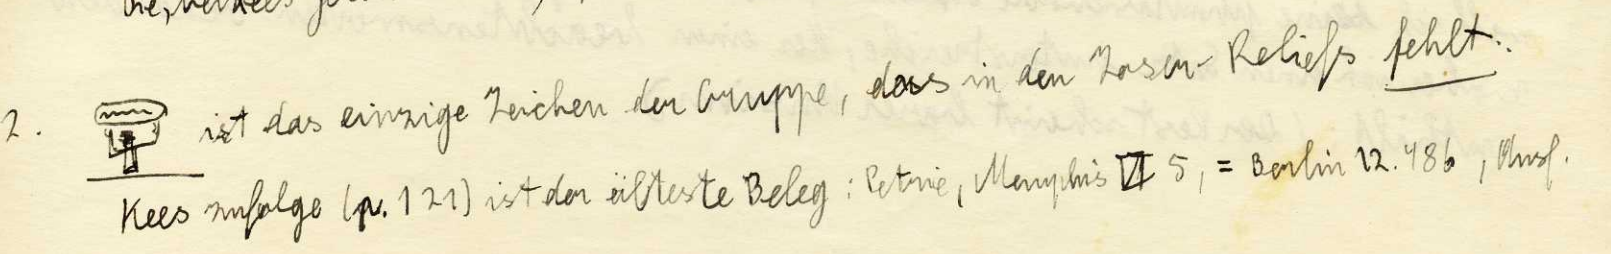 2. ist das einzige Zeichen der Gruppe, das in den Zoser-Reliefs fehlt.
Kees zufolge (p. 121) ist der älteste Beleg: Petrie, Memphis VI 5, = Berlin 12.486, Ausf.